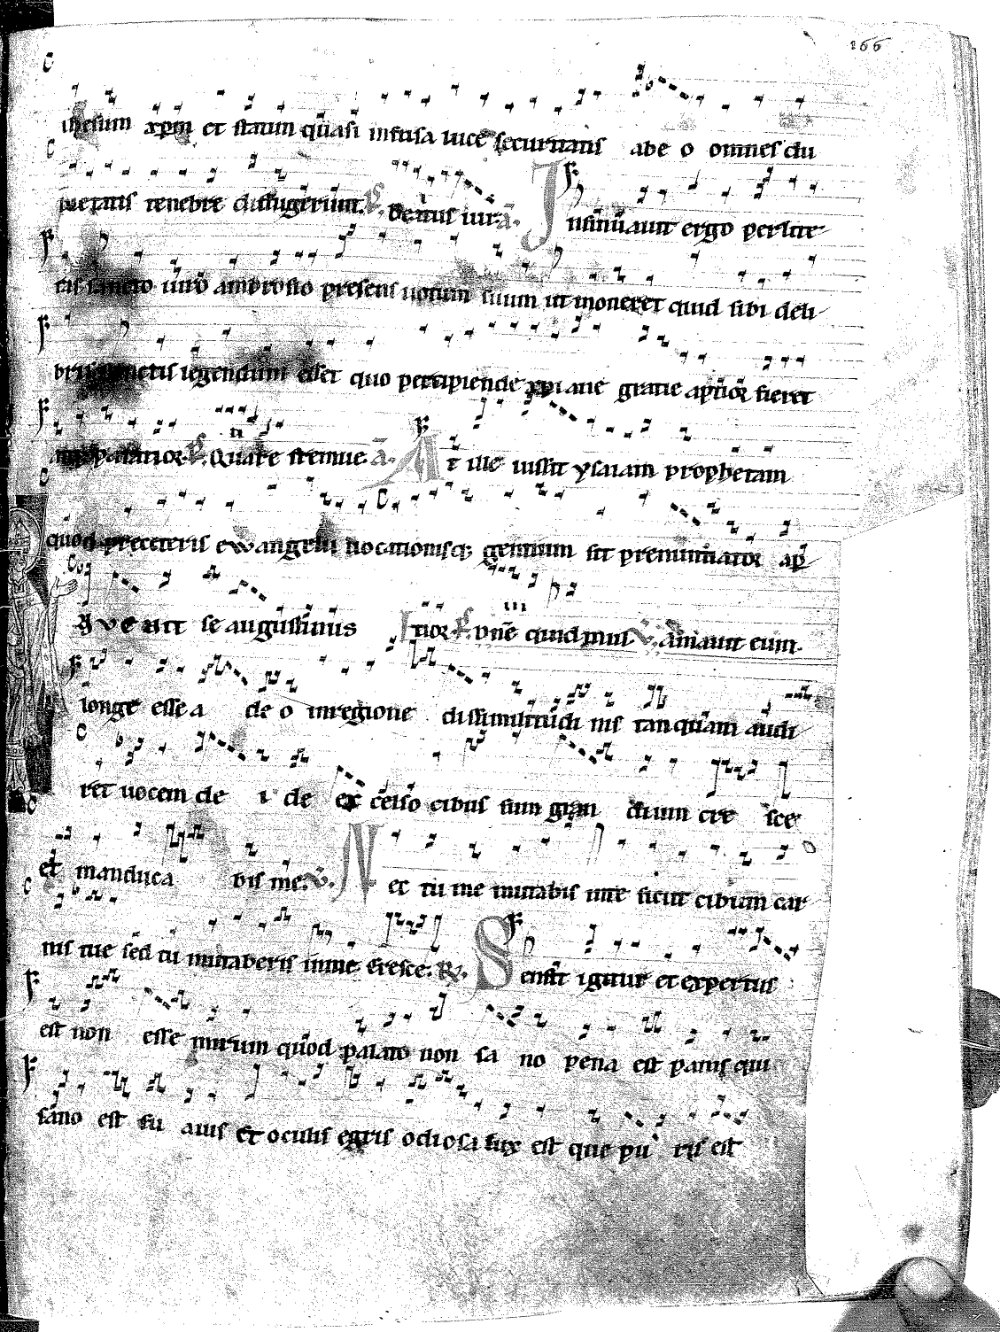 166
ihesum xpm et statim quasi infusa luce securitatis abe o omnes du
bietatis tenebre diffugerunt. p. Beatus uir. a. Insinuauit ergo per litte
ris sancto uiro ambrosio presens uotum suum ut moneret quid sibi de li
bris sanctis legendum esset quo percipiende xpiane gratie aptior fieret
atque paratior. p. ii Quare fremue. a. At ille iussit ysaiam prophetam
quod pre ceteris ewangelii uocationisque gentium sit prenuntiator ap
tior. p. iii Dne quid mul. v. Amauit eum.
Inuenit se augustinus
longe esse a de o in regione dissimilitudi nis tanquam audi
ret uocem de i de ex celso cibus sum gran dium cre sce
et manduca bis me. v. Nec tu me mutabis in te sicut cibum car
nis tue sed tu mutaberis in me. Cresce. R. Sensit igitur et expertus
est non esse mirum quod palato non sa no pena est panis qui
sano est su auis et oculis egris odiosa lux est que pu ris est